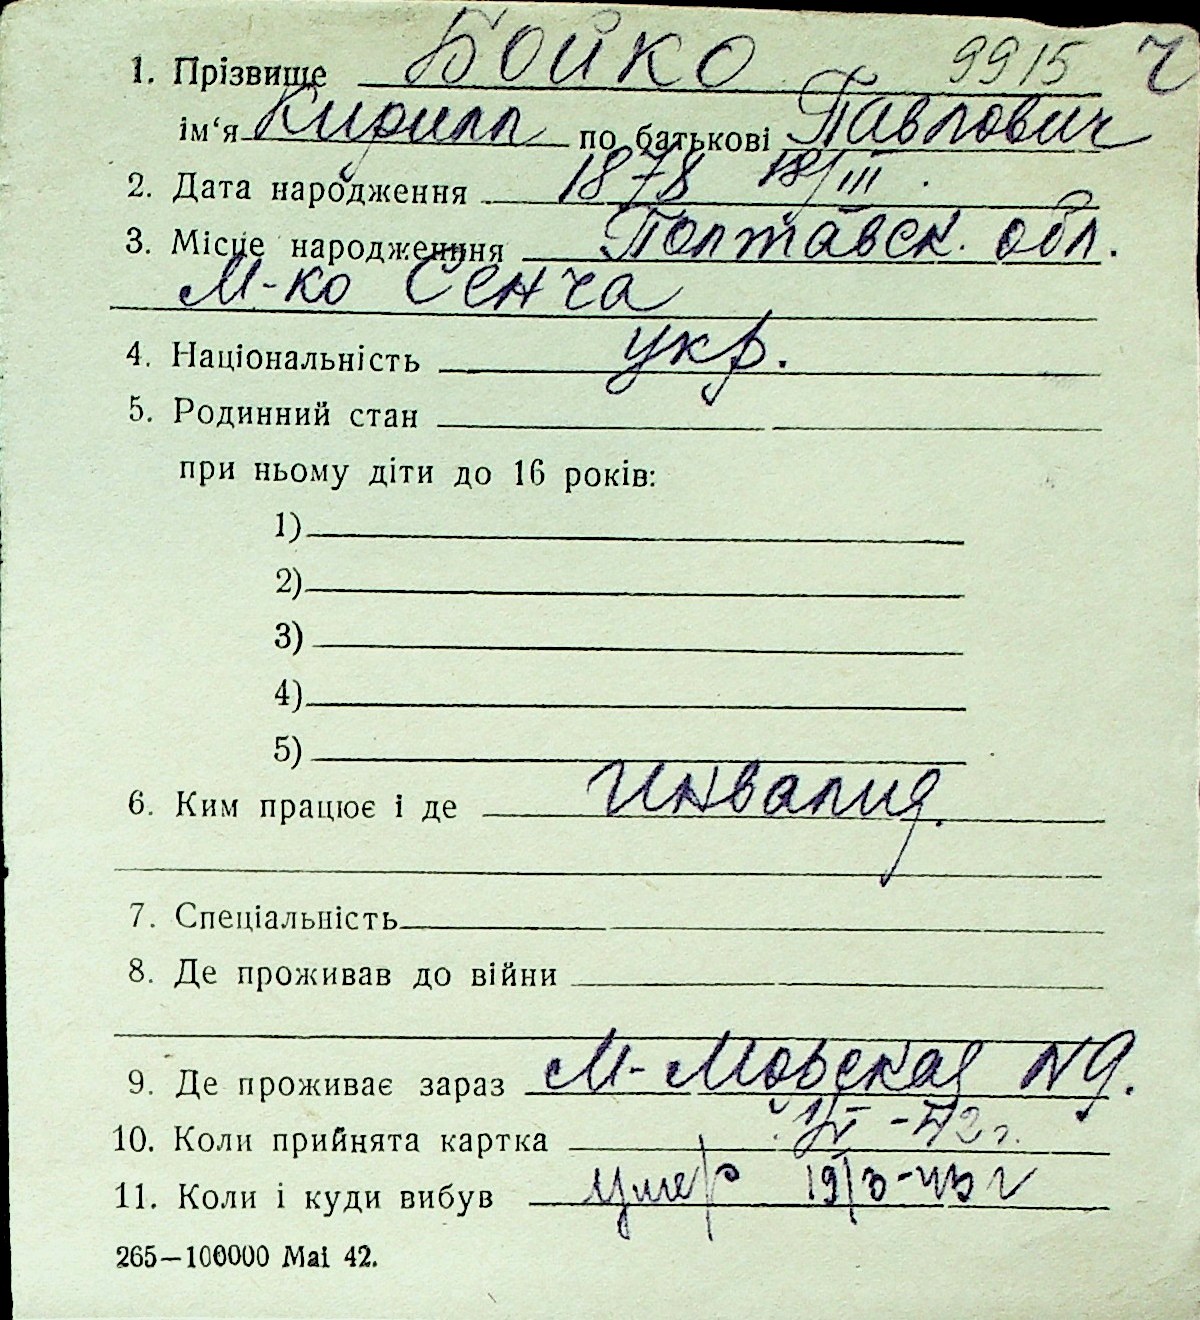 1. Прізвище Бойко 9915 Ч
ім‘я Кирилл по батькові Павлович
2. Дата народження 1878 18/III
3. Місце народженння Полтавск. обл.
м-ко Сенча
4. Національність укр.
5. Родинний стан
при ньому діти до 16 років:
1)
2)
3)
4)
5)
6. Ким працює і де Инвалид.
7. Спеціальність
8. Де проживав до війни
9. Де проживає зараз М- N 9.
10. Коли прийнята картка -42 г.
11. Коли і куди вибув умер 19/3-43 г
265—100000 Mai 42.